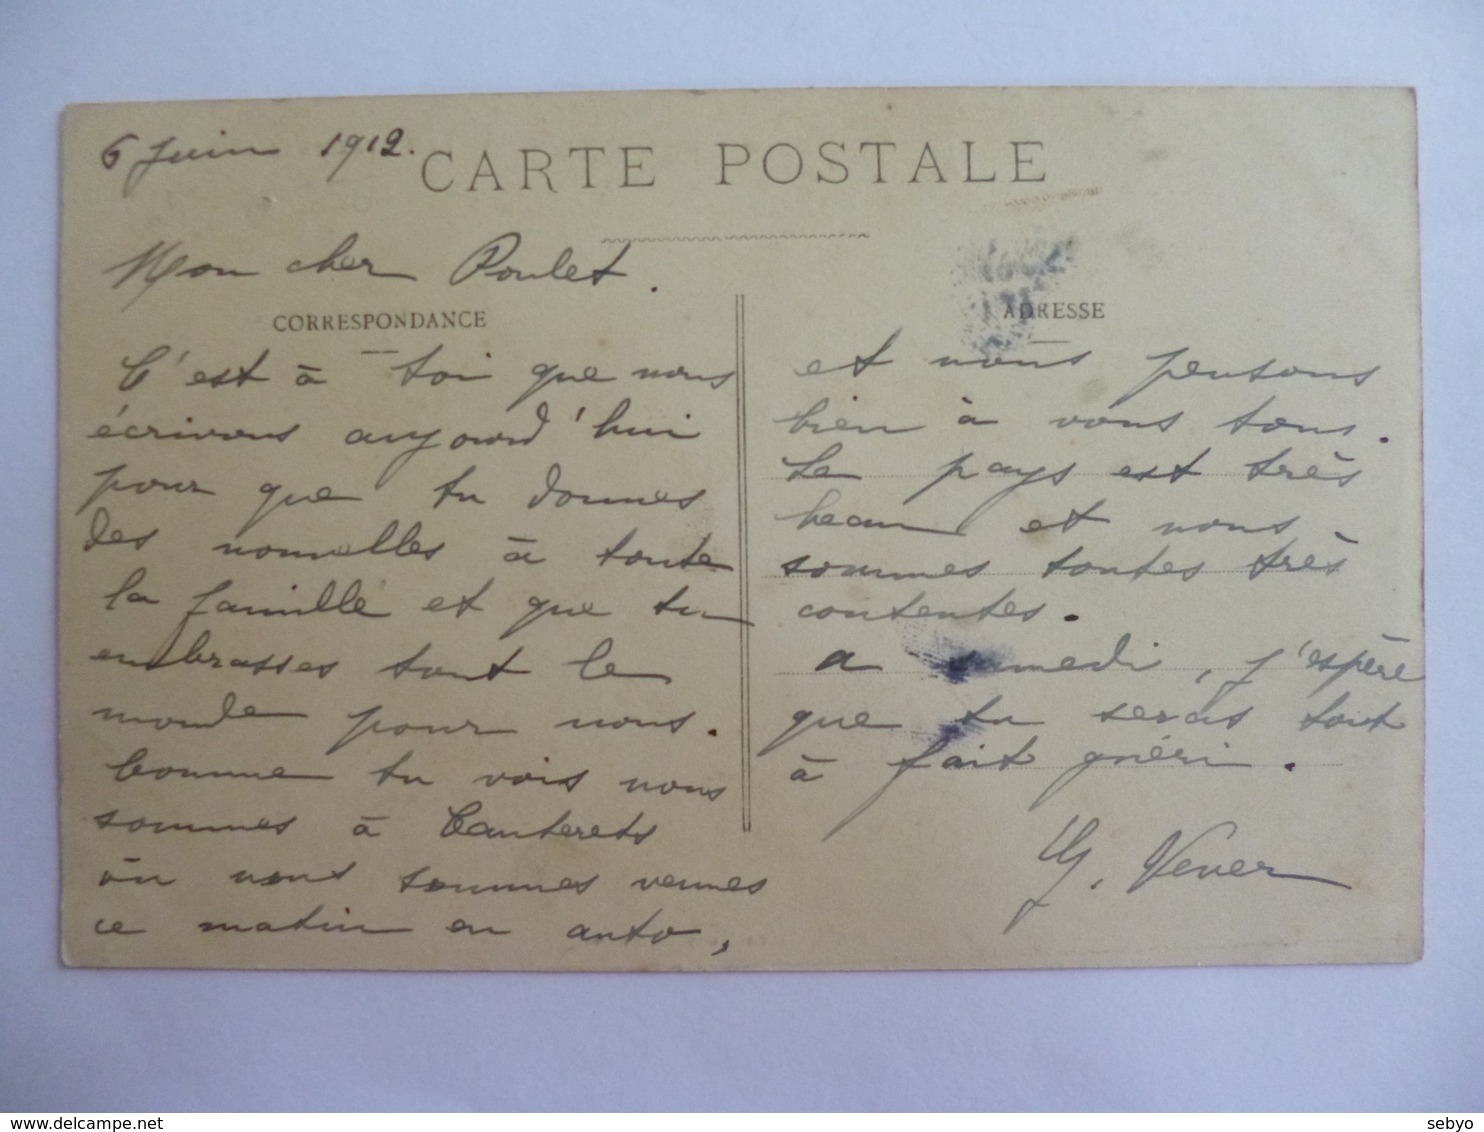 6 Juin 1912.
CARTE POSTALE
Mon cher Poulet.
CORRESPONDANCE
C'est à toi que nous
écrivons aujourd'hui
pour que tu donnes
des nouvelles à toute
la famille et que tu
embrasses tout le
monde pour nous.
Comme tu vois nous
sommes à Cauterets
où nous sommes venues
ce matin en auto,
ADRESSE
et nous pensons
bien à vous tous.
Le pays est très
beau et nous
sommes toutes très
contentes.
A samedi, j'espère
que tu seras tout
à fait guéri.
G. Vever
sebyo